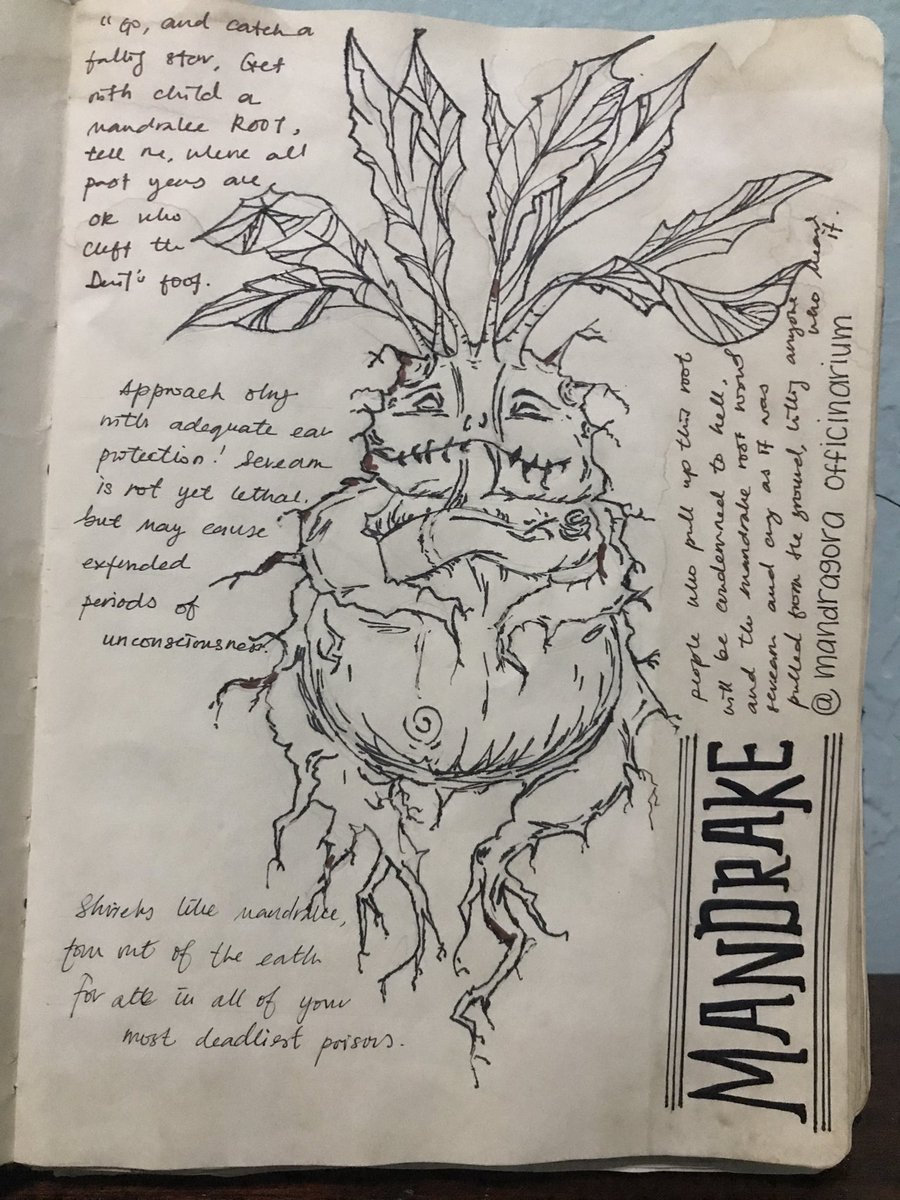 "Go, and catch a
falling star, Get
with child a
mandrake Root,
tell me, where all
past years are,
or who
cleft the
Devil's foot.
Approach only
with adequate ear
protection! Scream
is not yet lethal,
but may cause
extended
periods of
unconsciousness.
people who pull up this root
will be condemned to hell,
and the mandrake root would
scream and cry as it was
pulled from the ground, killing anyone
who heard it.
@ mandragora officinarium
MANDRAKE
Shrieks like mandrake,
torn out of the earth
for in all of your
most deadliest poisons.